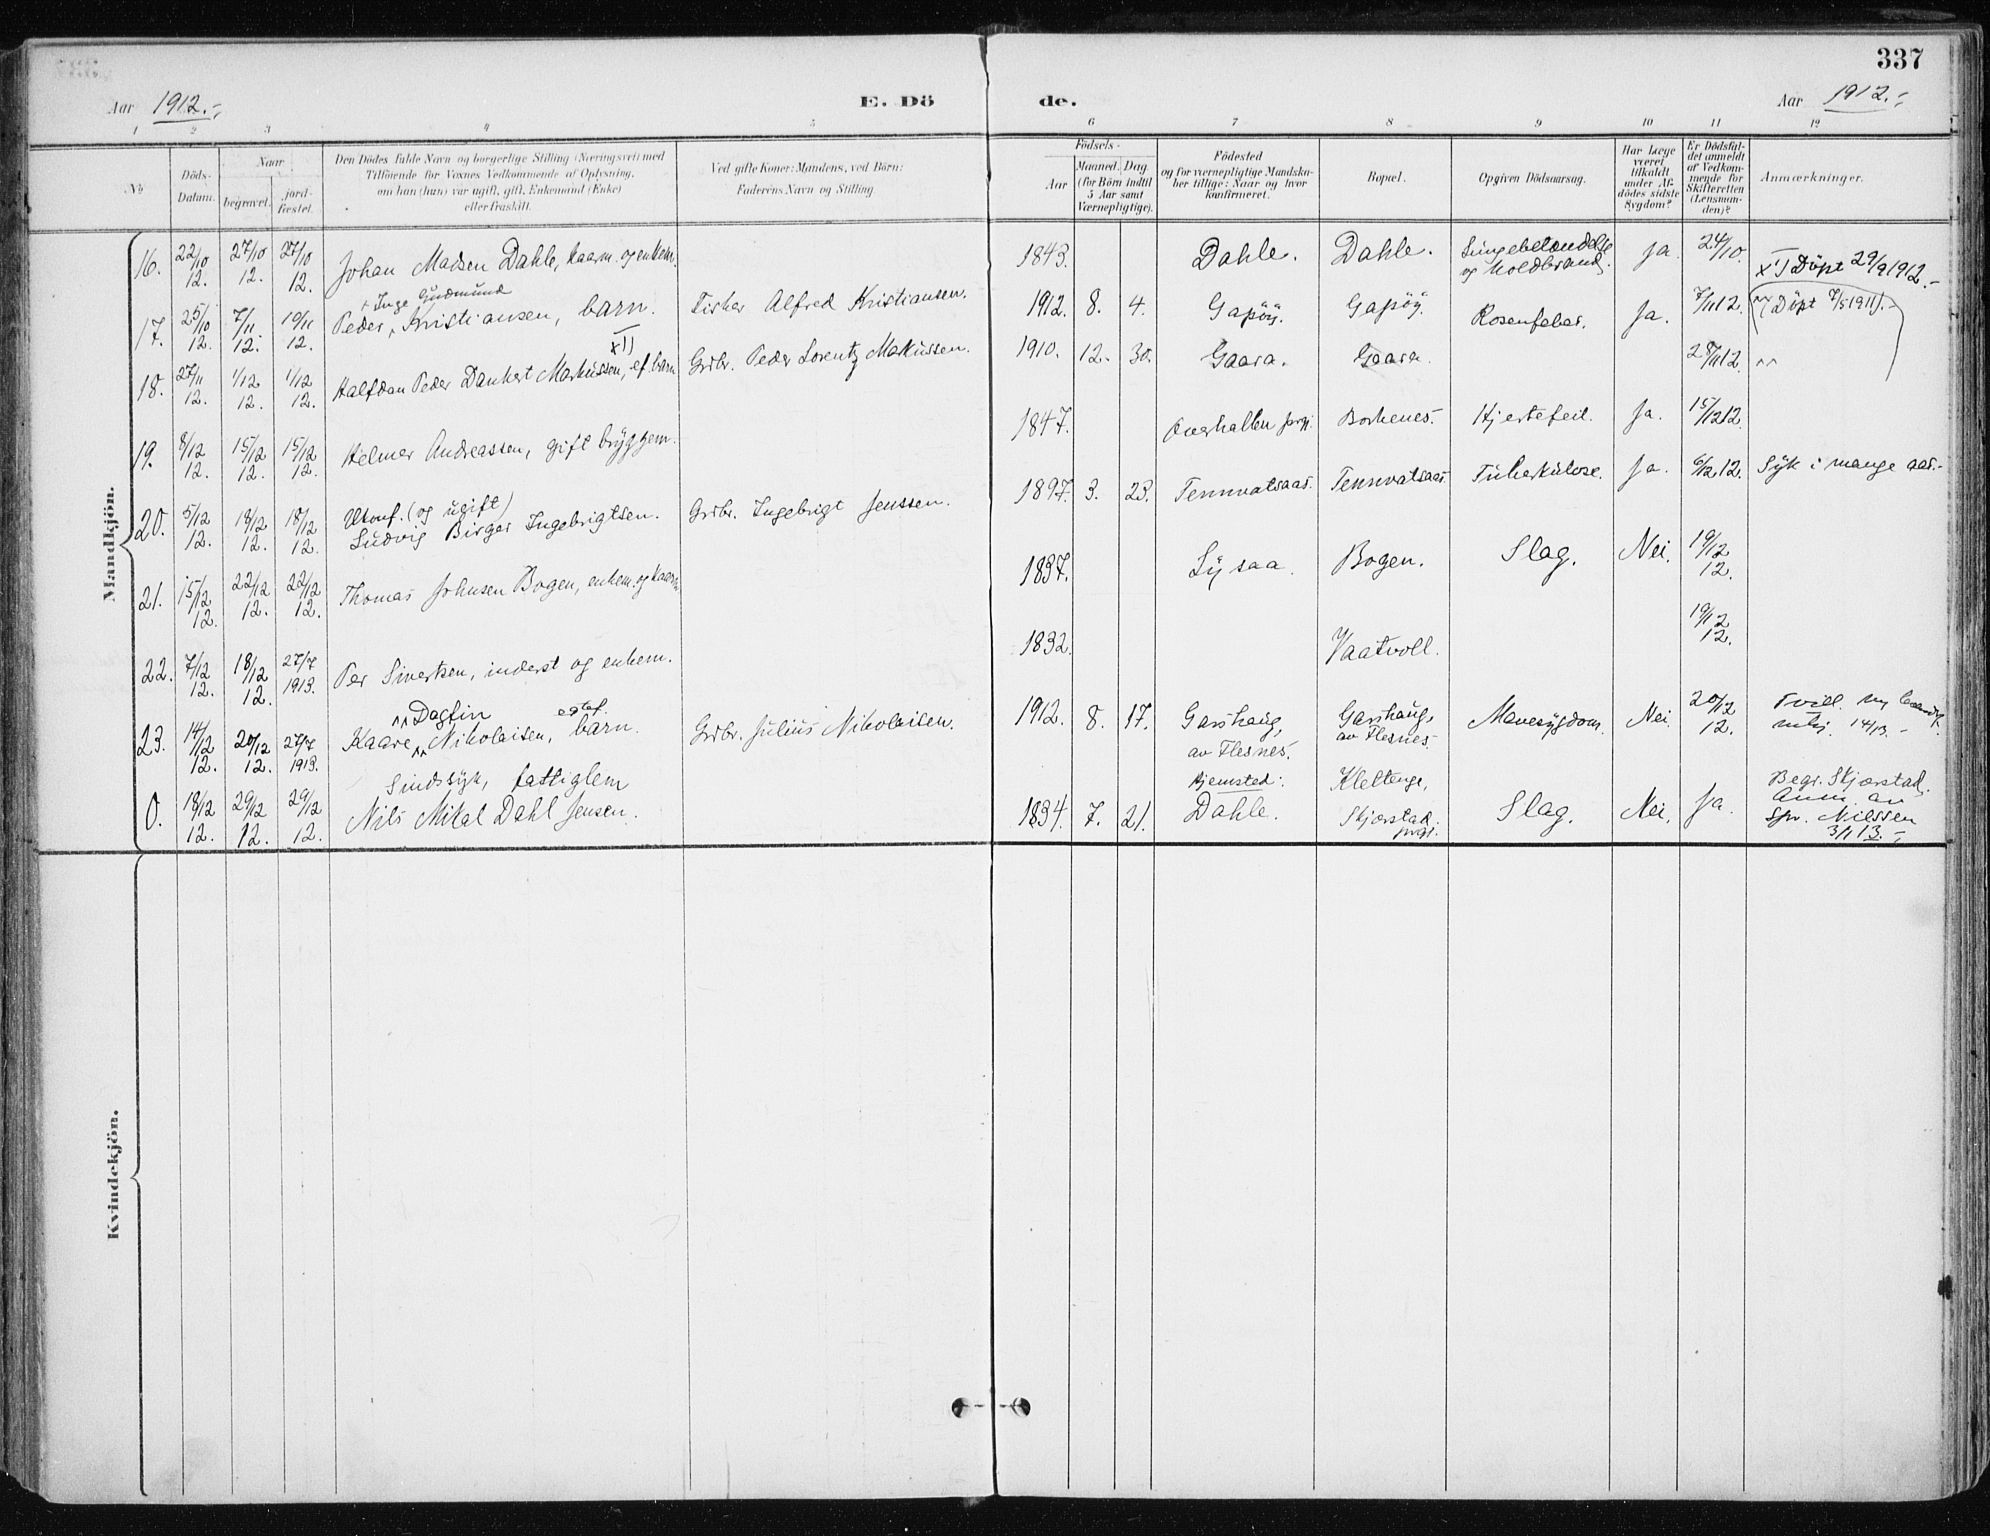 337
Aar 1912.- E. Dö de. Aar 1912.-
1 2 3 4 5 6 7 8 9 10 11 12
No
Döds-Datum.
Naar
begravet.
jord-fæstet.
Den Dödes fulde Navn og borgerlige Stilling (Næringsvei) med
Tilföiende for Voxnes Vedkommende af Oplysning,
om han (hun) var ugift, gift, Enkemand (Enke)
eller fraskilt.
Ved gifte Koner: Mandens, ved Börn:
Faderens Navn og Stilling.
Födsels-
Aar
Maaned. Dag
(for Börn indtil
5 Aar samt
Værnepligtige).
Födested
og for værnepligtige Mandska-
ber tillige: Naar og hvor
konfirmeret.
Bopæl.
Opgiven Dödsaarsag.
Har Læge
været
tilkaldt
under Af-
dödes sidste
Sygdom?
Er Dödsfal-
det anmeldt
af Vedkom-
mende for
Skifteretten
(Lensman-
den)?
Anmærkninger.
Mandkjön.
16. 22/10 12. 27/10 12. 27/10 12. Johan Madsen Dahle, kaarm. og enkem. 1843. Dahle. Dahle. Lungebetændelse og Koldbrand. Ja. 24/10. x1) Döpt 29/9 1912.-
17. 25/10 12. 7/11 12. 10/11 12. Peder Inge Gudmund Kristiansen, barn. x1) Fisker Alfred Kristiansen. 1912. 8. 4. Gapöy. Gapöy. Rosenfeber. Ja. 7/11 12. Döpt 7/5 1911).-
18. 27/11 12. 1/12 12. 1/12 12. Halfdan Peder Dankert Markussen, ef. barn Grbr. Peder Lorentz Markussen. 1910. 12. 30. Gaara. Gaara. 28/11 12.
19. 8/12 12. 15/12 12. 15/12 12. Helmer Andreassen, gift bryggem. 1847. Overhallen prgj. Borkenes. Hjertefeil. Ja. 15/12 12.
20. 5/12 12. 18/12 12. 18/12 12. Ukonf. (og ugift)
Ludvig Birger Ingebrigtsen. Grbr. Ingebrigt Jenssen. 1897. 3. 23. Tennvatsaas. Tennvatsaas. Tuberkulose. Ja. 6/12 12. Syk i mange aar.-
21. 15/12 12. 22/12 12. 22/12 12. Thomas Johnsen Bogen, enkem. og kaarm. 1837. Lysaa. Bogen. Slag. Nei. 19/12 12.
22. 7/12 12. 18/12 12. 27/7 1913. Per Sivertsen, inderst og enkem. 1832. Vaatvoll. 19/12 12.
23. 14/12 12. 20/12 12. 27/7 1913. Kaare Dagfin Nikolaisen, egtef. barn. Grbr. Julius Nikolaisen. 1912. 8. 17. Garshaug, av Flesnes. Garshaug, av Flesnes. Mavesygdom. Nei. 20/12 12.
0. 18/12 12. 29/12 12. 29/12 12. Sindssyk, fattiglem
Nils Mikal Dahl Jensen. 1834. 7. 21. Hjemsted: Dahle. Kleltenge, Skjærstad prgj. Slag. Nei. Ja. Begr. Skjærstad. Anm. av Spr. Nilssen 3/1 13.-
Kvindekjön.